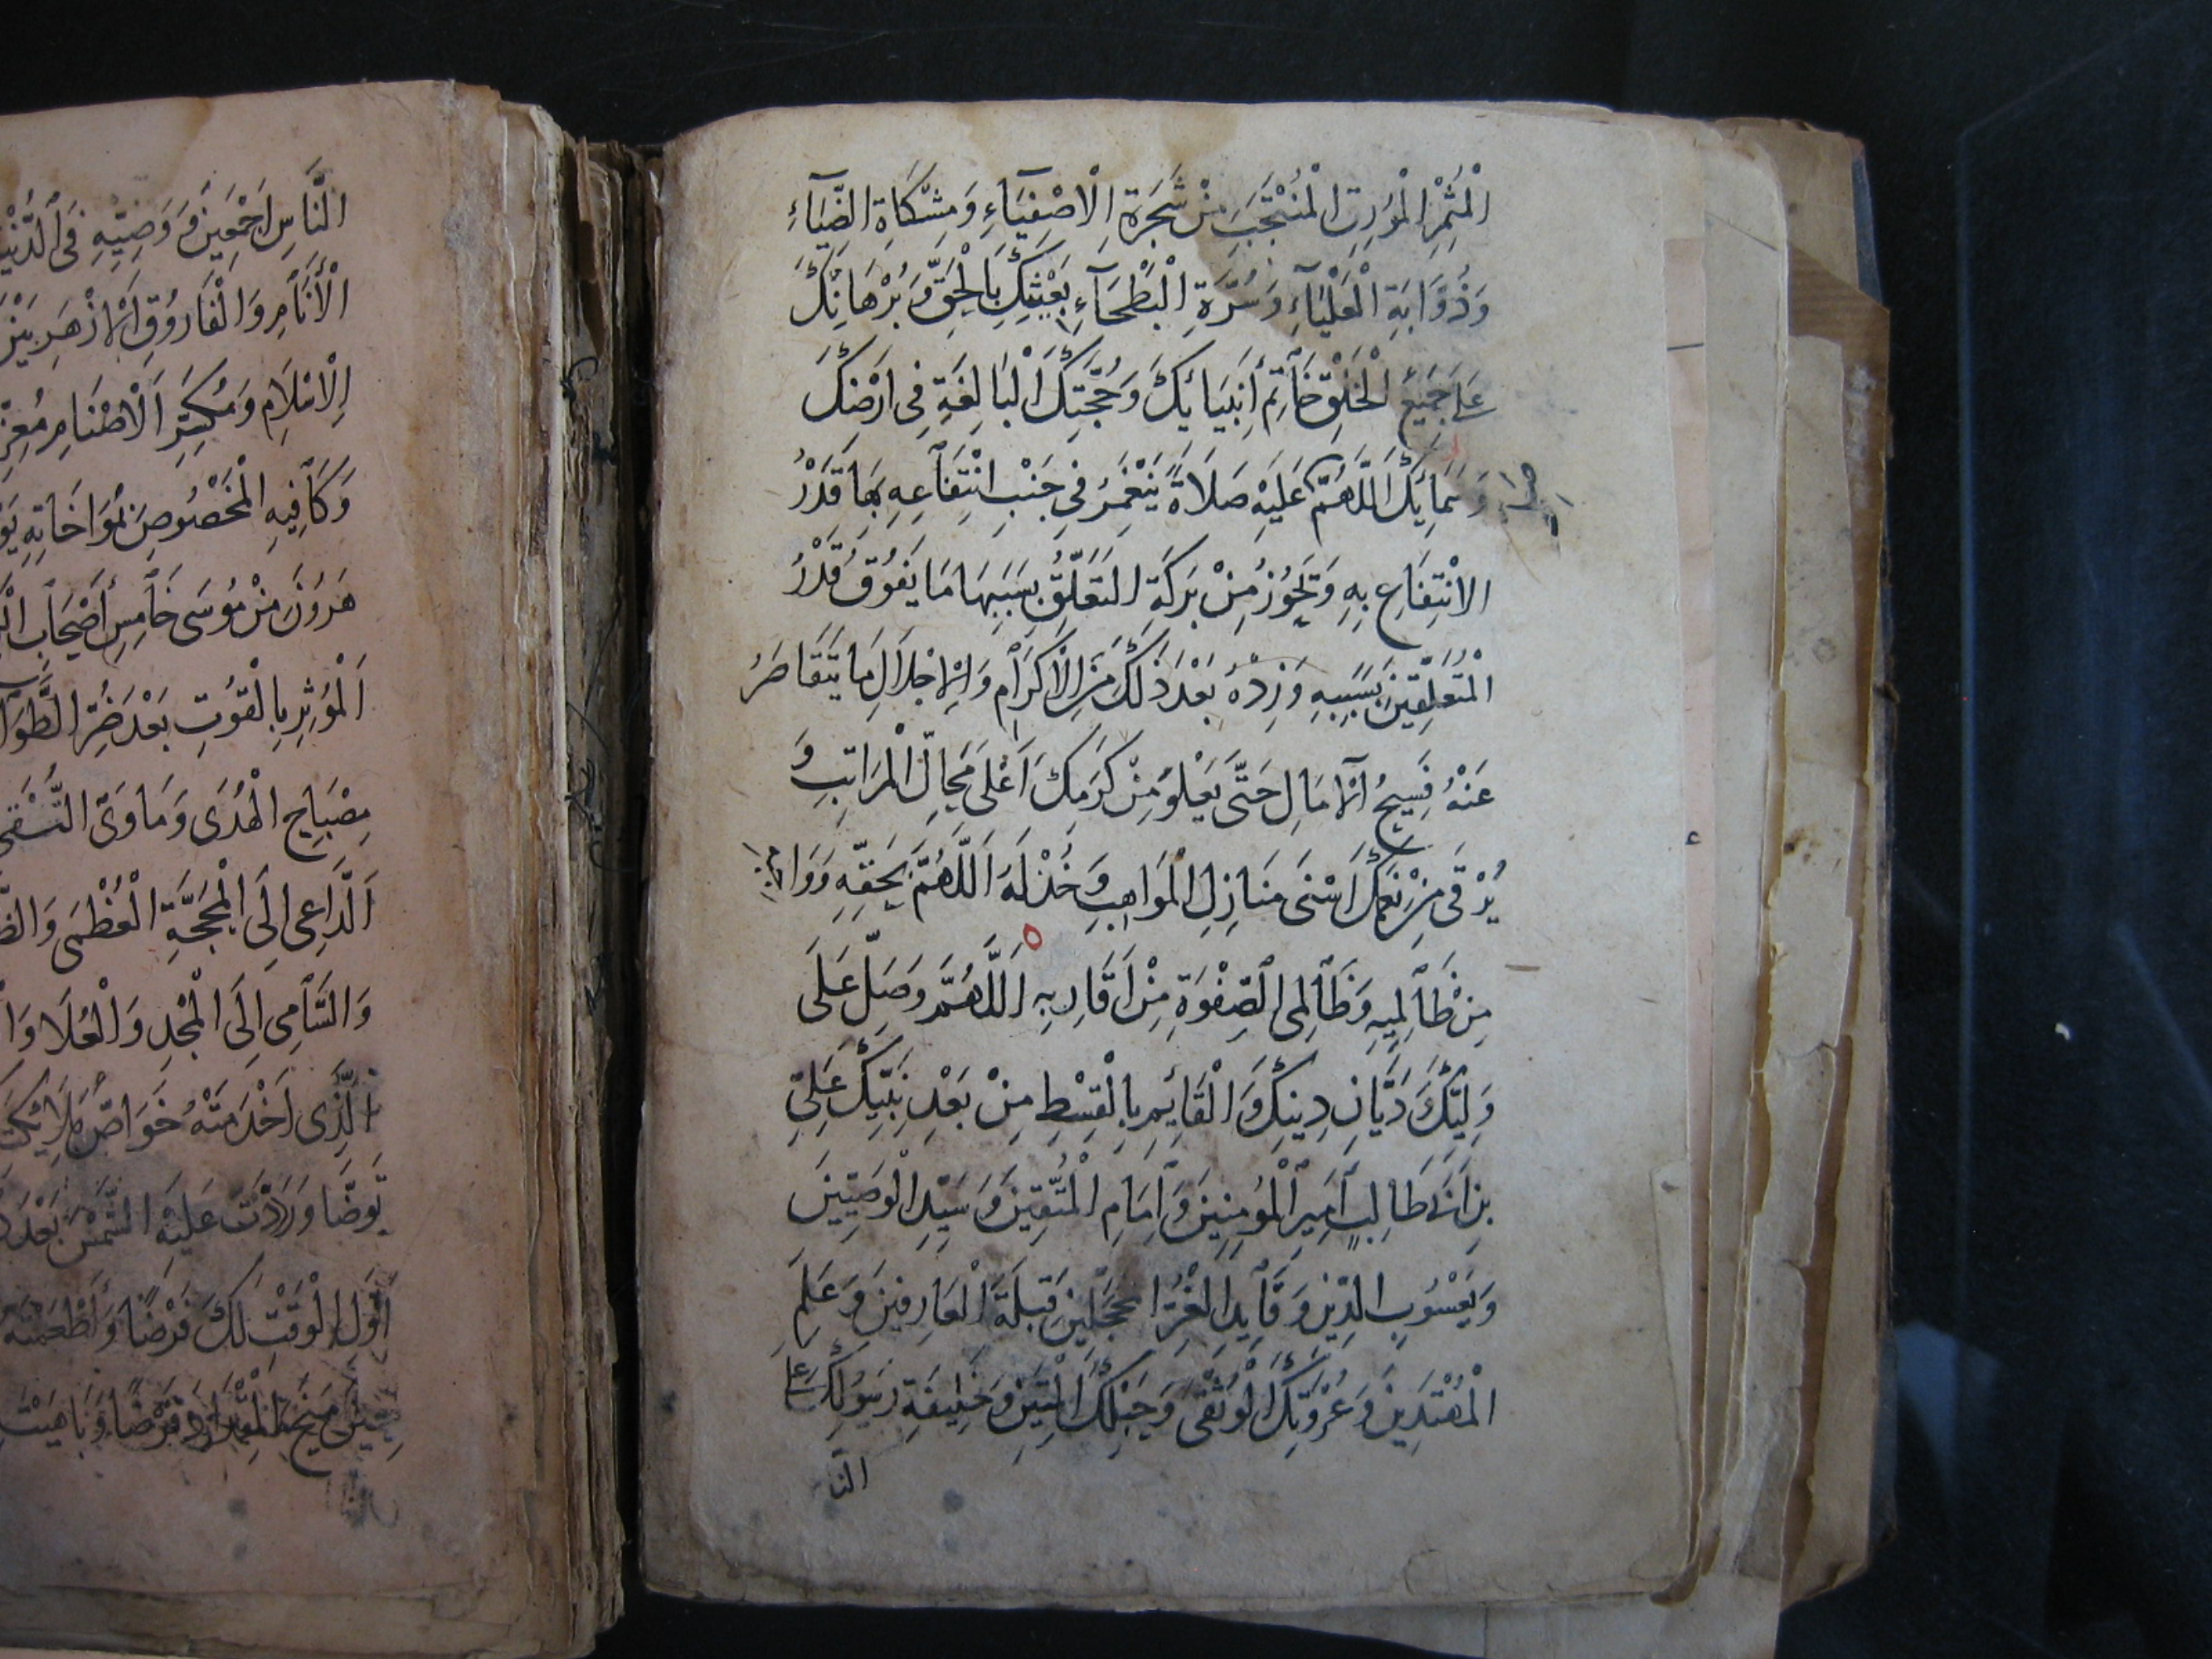 الْمُثْمِرِ الْمُورِقِ الْمُنْتَجَبِ مِنْ شَجَرَةِ الْاَصْفِيَآءِ وَمِشْكَاةِ الضِّيَآءِ
وَذُؤَابَةِ الْعَلْيَآءِ وَسُرَّةِ الْبَطْحَآءِ بَعِيْثِكَ بِالْحَقِّ وَبُرْهَانِكَ
عَلَى جَمِيْعِ الْخَلْقِ خَاتَمِ أَنْبِيَائِكَ وَحُجَّتِكَ الْبَالِغَةِ فِى اَرْضِكَ
وَسَمَائِكَ اَللَّهُمَّ عَلَيْهِ صَلَاةً يَنْغَمِرُ فِى جَنْبِ انْتِفَاعِهِ بِهَا قَدْرُ
الْاِنْتِفَاعِ بِهِ وَتَحُوزُ مِنْ بَرَكَةِ التَّعَلُّقِ بِسَبَبِهَا مَا يَفُوقُ قَدْرُ
الْمُتَعَلِّقِيْنَ بِسَبَبِهِ وَزِدْهُ بَعْدَ ذٰلِكَ مِنَ الْاِكْرَامِ وَالْاِجْلَالِ مَا يَتَقَاصَرُ
عَنْهُ فَسِيحُ الْآمَالِ حَتَّى يَعْلُوَ مِنْ كَرَمِكَ اَعْلَى مَحَالِّ الْمَرَاتِبِ وَ
يُرْقَى مِنْ نِعَمِكَ اَسْنَى مَنَازِلِ الْمَوَاهِبِ وَخُذْ لَهُ اَللَّهُمَّ بِحَقِّهِ وَوَاجِبِهِ
مِنْ ظَالِمِيهِ وَظَالِمِى الصَّفْوَةِ مِنْ اَقَارِبِهِ اَللَّهُمَّ وَصَلِّ عَلَى
وَلِيِّكَ دَيَّانِ دِينِكَ وَالْقَائِمِ بِالْقِسْطِ مِنْ بَعْدِ نَبِيِّكَ عَلِيِّ
بْنِ اَبِى طَالِبٍ اَمِيْرِ الْمُؤْمِنِيْنَ وَاِمَامِ الْمُتَّقِيْنَ وَسَيِّدِ الْوَصِيِّيْنَ
وَيَعْسُوبِ الدِّيْنِ وَقَآئِدِ الْغُرِّ الْمُحَجَّلِيْنَ قِبْلَةِ الْعَارِفِيْنَ وَعَلَمِ
الْمُهْتَدِيْنَ وَعُرْوَتِكَ الْوُثْقَى وَحَبْلِكَ الْمَتِيْنِ وَخَلِيفَةِ رَسُولِكَ عَلَى
النا
النَّاسِ اَجْمَعِيْنَ وَوَصِيِّهِ فِى الدُّنْيَا
الْأَنَامِ وَالْفَارُوقِ الْاَزْهَرِ بَيْنَ
الْاِسْلَامِ وَمُكَسِّرِ الْاَصْنَامِ مُعِزِّ
الْمَخْصُوصِ بِمُوَاخَاتِهِ
هٰرُوْنَ مِنْ مُوسَى خَامِسِ أَصْحَابِ
اَلْمُؤْثِرِ بِالْقُوتِ بَعْدَ ضُرِّ الطَّوَى
مِصْبَاحِ الْهُدَى وَمَأْوَى التُّقَى
اَلدَّاعِى اِلَى الْمَحَجَّةِ الْعُظْمَى
وَالسَّامِى اِلَى الْمَجْدِ وَالْعُلَا
الَّذِى اَخْدَمْتَهُ خَوَاصَّ مَلَائِكَتِكَ
تَوَضَّا وَرَدَدْتَ عَلَيْهِ الشَّمْسَ بَعْدَ
اَوَّلِ الْوَقْتِ لَكَ فَرْضًا وَاَطْعَمْتَهُ
حِيْنَ مَنَحَ الْمِقْدَادَ قَرْضًا وَبَاهَيْتَ